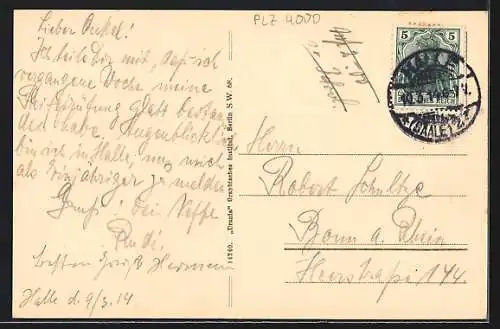 Lieber Onkel!
Ich teile Dir mit, daß ich
vergangene Woche meine
Reifeprüfung glatt bestan-
den habe. Augenblicklich
bin ich in Halle, um mich
als Einjähriger zu melden
Gruß! Dein Neffe
Rudi.
besten Gruß Hermann
Halle d. 9/3. 14
14740. „Urania" Graphisches Institut, Berlin S W. 68.
PLZ 4000
5 5
HALLE
(SAALE) 2
Herrn
Robert Schultze
Bonn a. Rhein
Heerstraße 144.